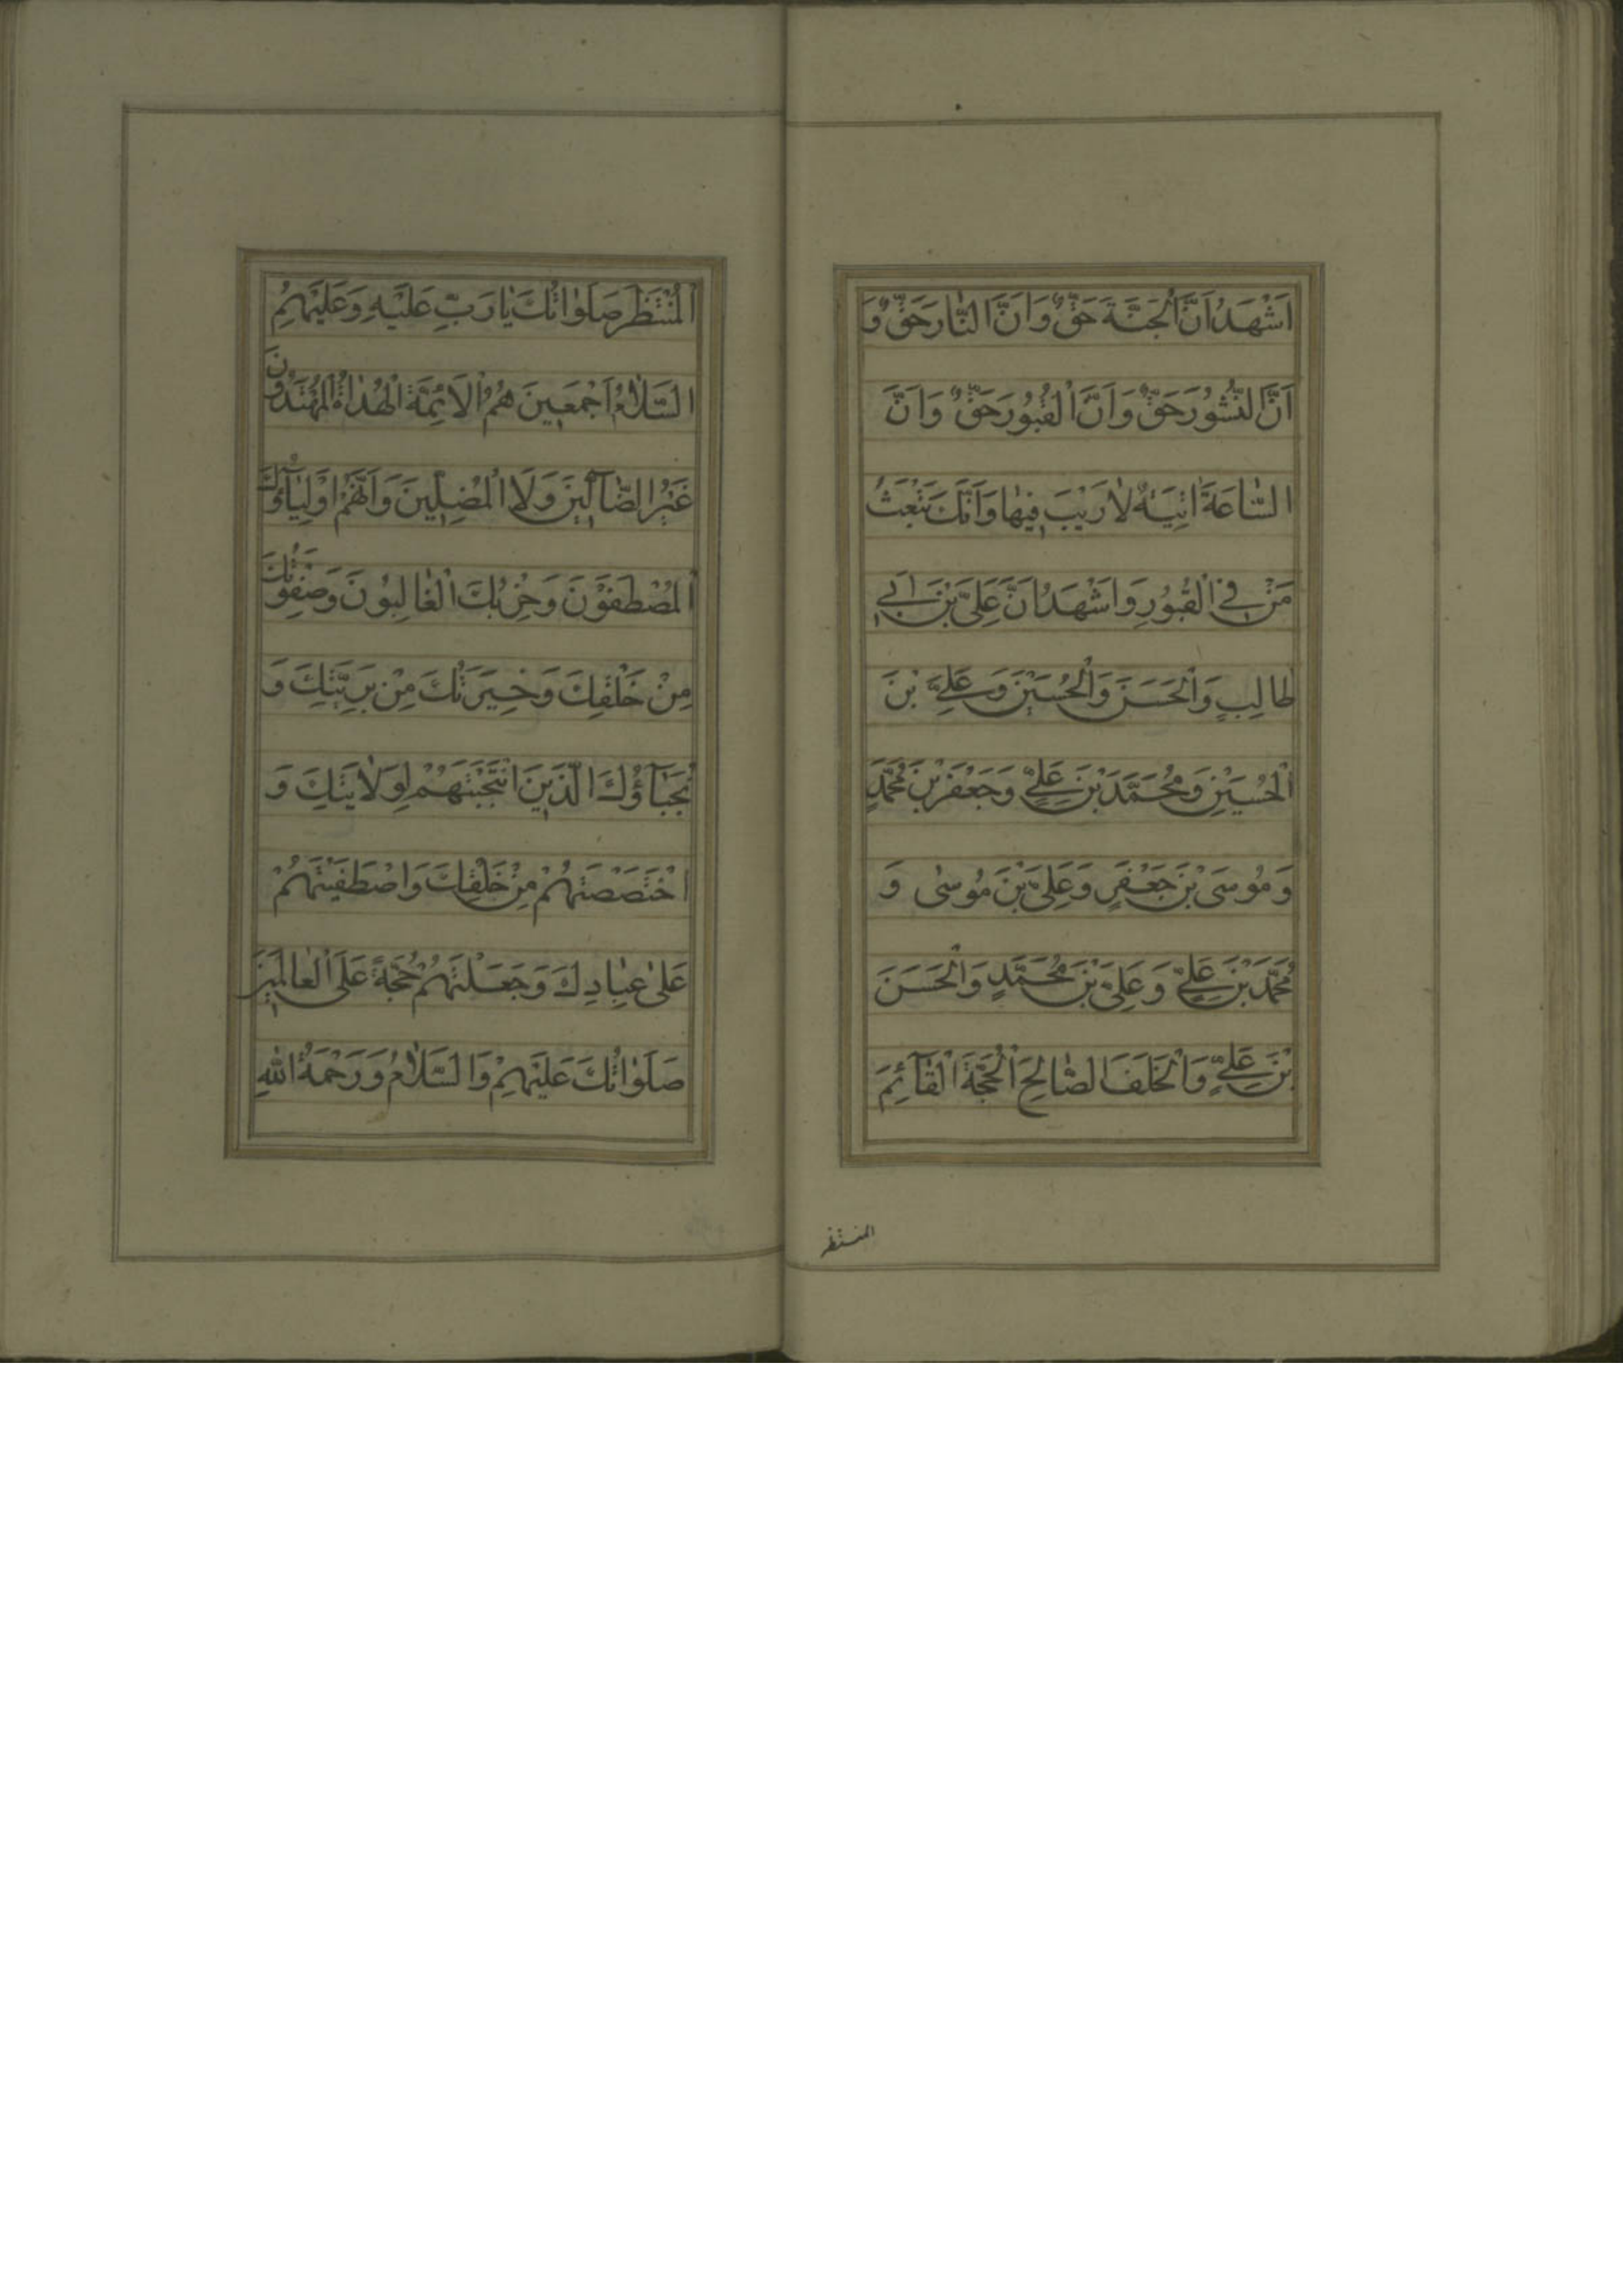 اَشْهَدُ اَنَّ الْجَنَّةَ حَقٌّ وَ اَنَّ النّٰارَ حَقٌّ وَ
اَنَّ النُّشُورَ حَقٌّ وَ اَنَّ الْقُبُورَ حَقٌّ وَ اَنَّ
السّٰاعَةَ اٰتِيَةٌ لٰا رَيْبَ فِيهٰا وَ اَنَّكَ تَبْعَثُ
مَنْ فِي الْقُبُورِ وَ اَشْهَدُ اَنَّ عَلِيَّ بْنَ اَبِي
طٰالِبٍ وَ الْحَسَنَ وَ الْحُسَيْنَ وَ عَلِيَّ بْنَ
الْحُسَيْنِ وَ مُحَمَّدَ بْنَ عَلِيٍّ وَ جَعْفَرَ بْنَ مُحَمَّدٍ
وَ مُوسَى بْنَ جَعْفَرٍ وَ عَلِيَّ بْنَ مُوسٰى وَ
مُحَمَّدَ بْنَ عَلِيٍّ وَ عَلِيَّ بْنَ مُحَمَّدٍ وَ الْحَسَنَ
بْنَ عَلِيٍّ وَ الْخَلَفَ الصّٰالِحَ الْحُجَّةَ الْقٰآئِمَ
المنتظر
الْمُنْتَظَرَ صَلَوٰاتُكَ يٰا رَبِّ عَلَيْهِ وَ عَلَيْهِمُ
السَّلٰامُ اَجْمَعِينَ هُمُ الْاَئِمَّةُ الْهُدٰاةُ الْمُهْتَدُونَ
غَيْرُ الضّٰآلِّينَ وَ لَا الْمُضِلِّينَ وَ اَنَّهُمْ اَوْلِيٰآؤُكَ
الْمُصْطَفَوْنَ وَ حِزْبُكَ الْغٰالِبُونَ وَ صَفْوَتُكَ
مِنْ خَلْقِكَ وَ خِيَرَتُكَ مِنْ بَرِيَّتِكَ وَ
نُجَبٰآؤُكَ الَّذِينَ انْتَجَبْتَهُمْ لِوَلٰايَتِكَ وَ
اخْتَصَصْتَهُمْ مِنْ خَلْقِكَ وَ اصْطَفَيْتَهُمْ
عَلٰى عِبٰادِكَ وَ جَعَلْتَهُمْ حُجَّةً عَلَى الْعٰالَمِينَ
صَلَوٰاتُكَ عَلَيْهِمْ وَ السَّلٰامُ وَ رَحْمَةُ اللّٰهِ